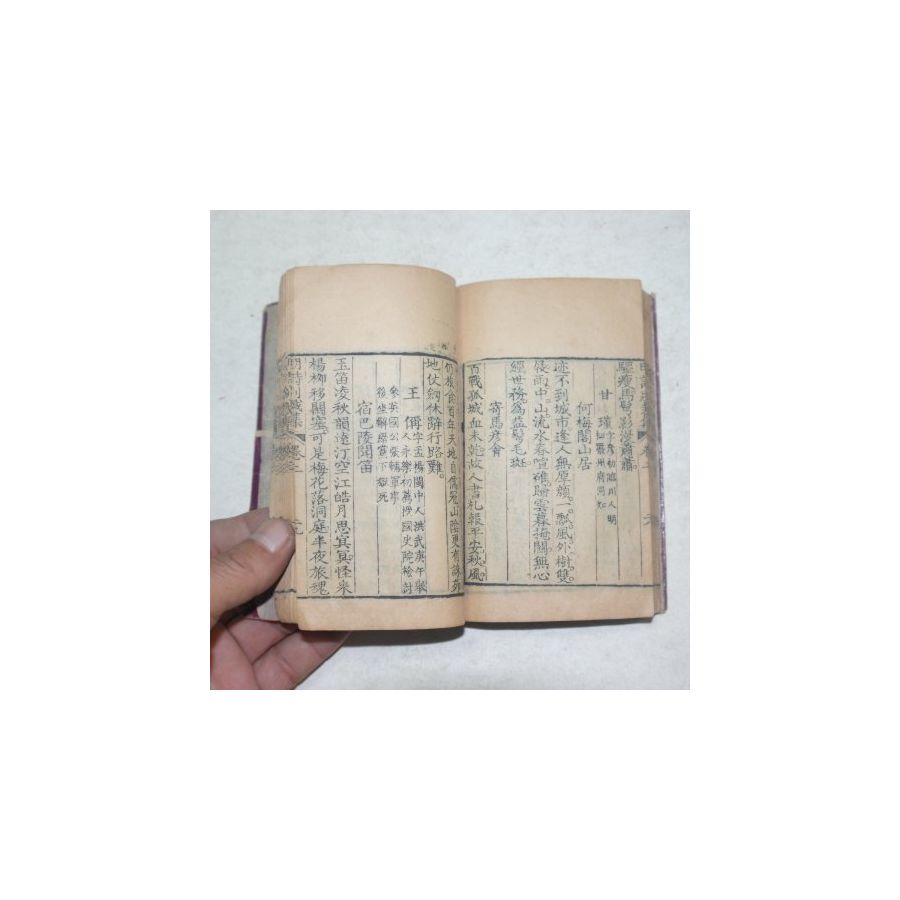 驅瘦馬鬢影漫蕭蕭
甘瑾 字彥初臨川人明
何梅閣山居
迹不到城市逢人無厚顏一瓢風外樹雙
屐雨中山流水春喧碓歸雲暮掩關無心
經世務為益鬢毛斑
寄馬彥會
百戰孤城血未乾故人書札報平安秋風
地仗劒休辭行路難
王偁 字孟楊閩中人洪武庚午舉
人永樂初薦授國史院檢討
參英國公張輔軍事
後坐解縉黨下獄死
宿巴陵聞笛
玉笛凌秋韻遠汀空江皓月思冥冥怪來
楊柳移關塞可是梅花落洞庭半夜旅魂
明詩別裁集 卷三